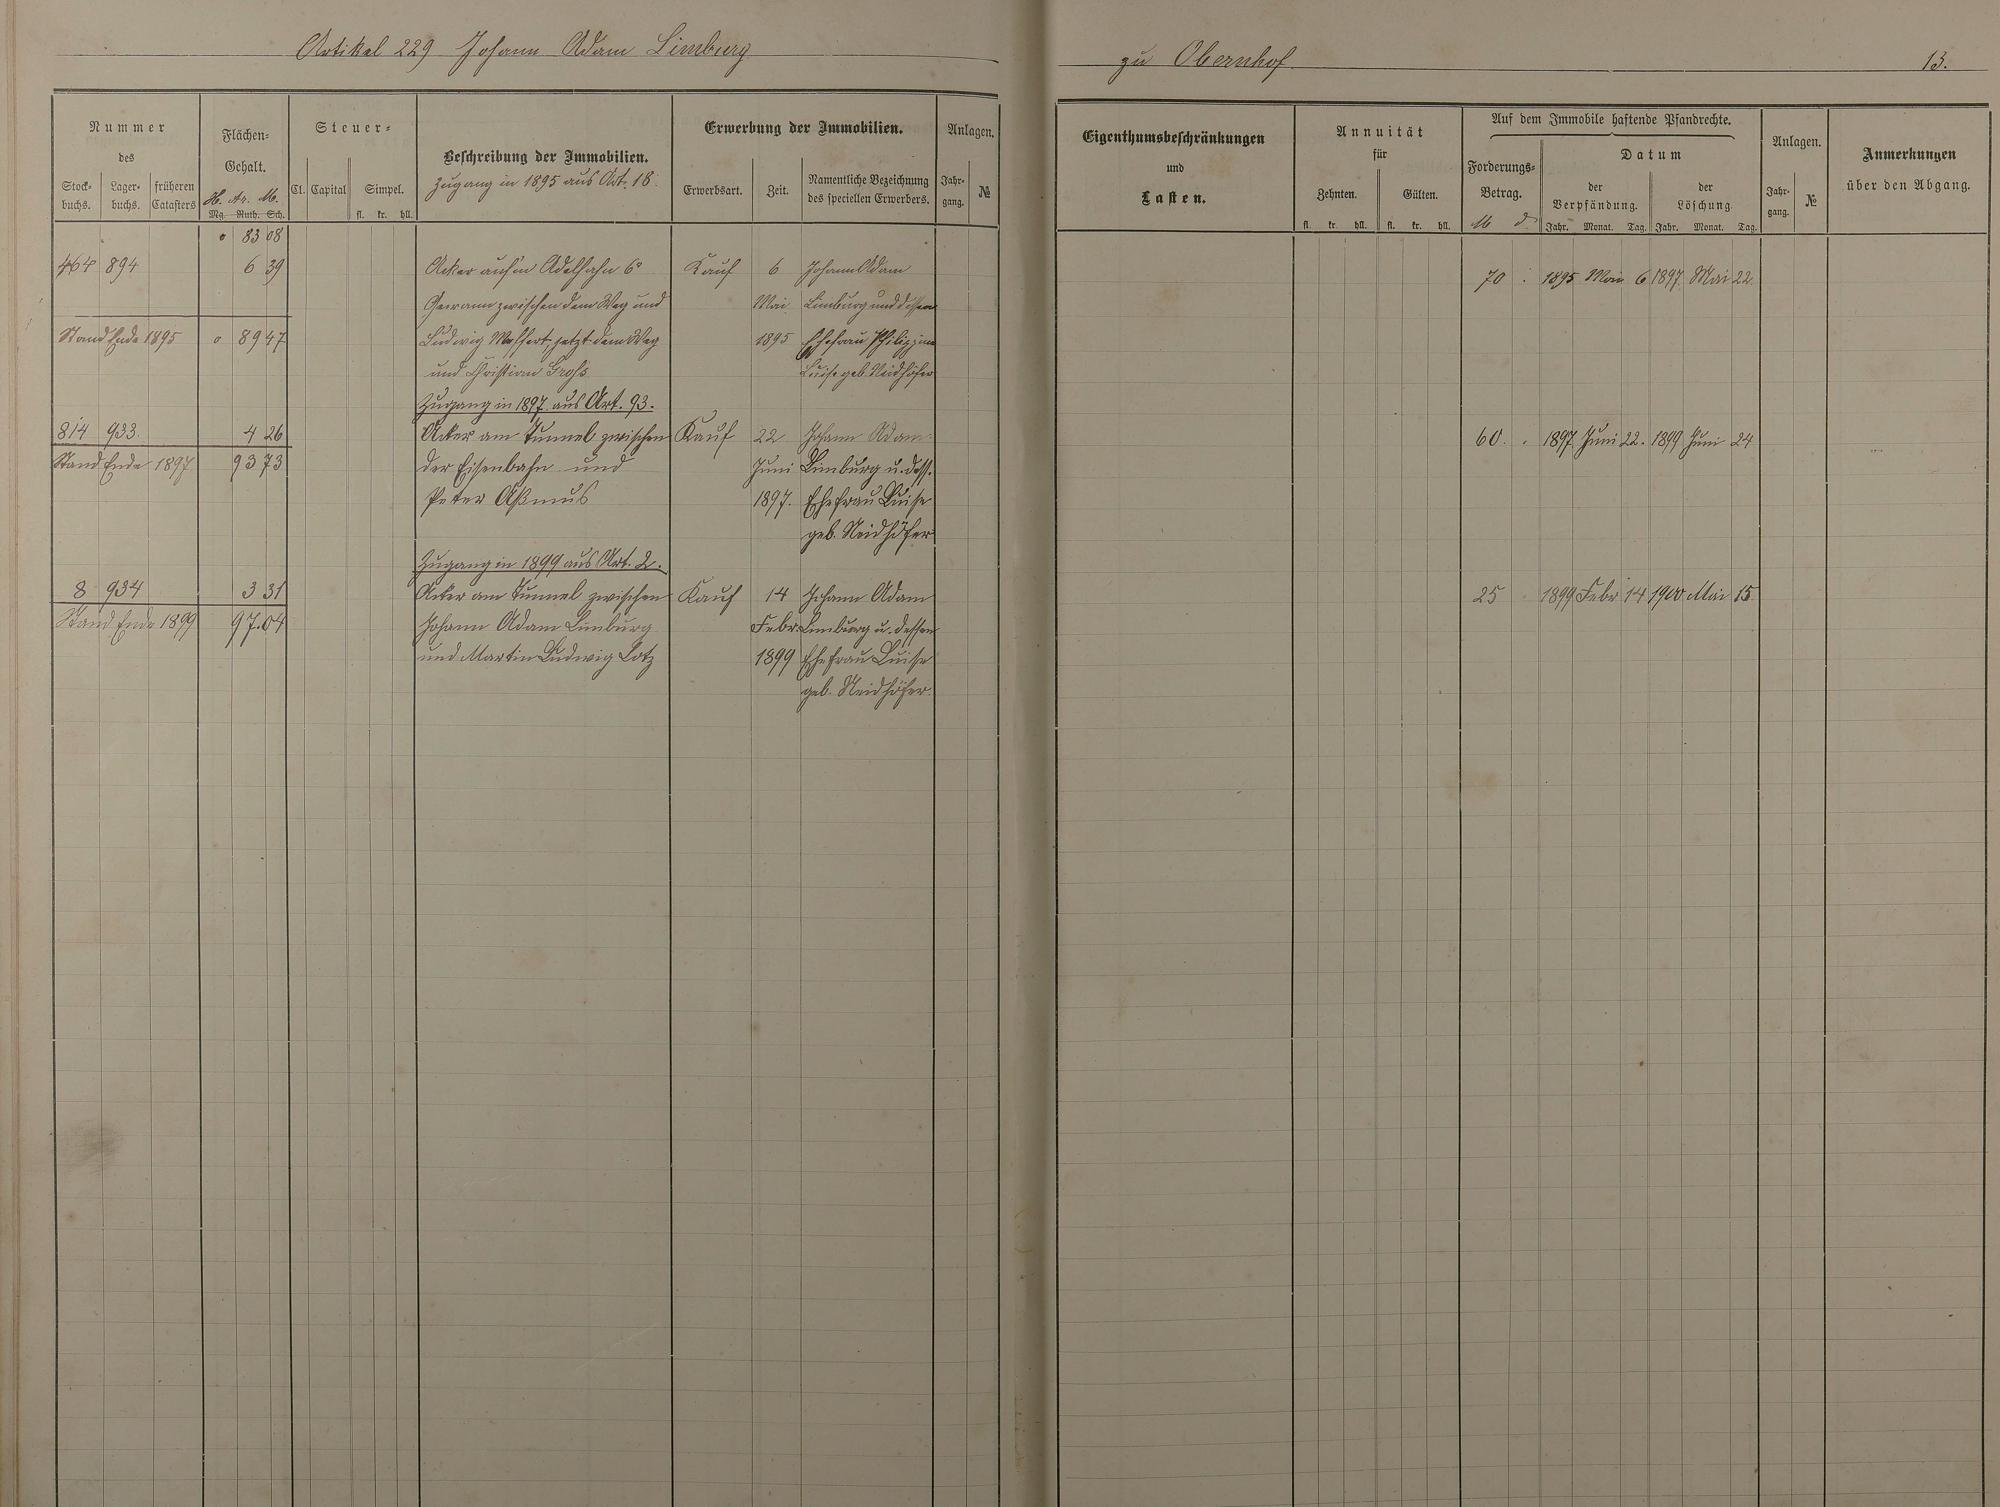 Artikel 229 Johann Adam Limburg
zu Obernhof
13.
Nummer
des
Stock-
buchs.
Lager-
buchs.
früheren
Catasters
Flächen-
Gehalt.
H. Ar. M.
Mg. Ruth. Sch.
Steuer-
Cl. Capital Simpel.
fl. kr. hll.
Beschreibung der Immobilien.
Zugang in 1895 aus Art. 18.
Erwerbung der Immobilien.
Erwerbsart. Zeit.
Namentliche Bezeichnung
des speciellen Erwerbers.
Anlagen.
Jahr-
gang.
№
Eigenthumsbeschränkungen
und
Lasten.
Annuität
für
Zehnten. Gülten.
fl. kr. hll. fl. kr. hll.
Auf dem Immobile haftende Pfandrechte.
Forderungs-
Betrag.
M
Datum
der
Verpfändung.
der
Löschung
Jahr. Monat. Tag. Jahr. Monat. Tag.
Anlagen.
Jahr-
gang.
№
Anmerkungen
über den Abgang.
0 83 08
464 894 6 39 Acker auf'm Kauf 6 Johann Adam 70 1895 Mai 6 1897 Mai 22.
Gewann zwischen dem Weg und Mai Limburg und dessen
Stand Ende 1895 0 89 47 Ludwig jetzt dem Weg 1895 Ehefrau Philippine
und Christian Groß Luise geb. Neidhöfer
Zugang in 1897 aus Art. 93.
814 933. 4 26 Acker am Tunnel zwischen Kauf 22 Johann Adam 60. 1897 Juni 22. 1899 Juni 24
Stand Ende 1897 93 73 der Eisenbahn und Juni Limburg u. dess.
Peter Aßmus 1897. Ehefrau Luise
geb. Neidhöfer
Zugang in 1899 aus Art. 2.
8 934 3 31 Acker am Tunnel zwischen Kauf 14 Johann Adam 25 1899 Febr 14 1900 Mai 15
Stand Ende 1899 97.04 Johann Adam Limburg Febr. Limburg u. dessen
und Martin Ludwig Lotz 1899 Ehefrau Luise
geb. Neidhöfer.